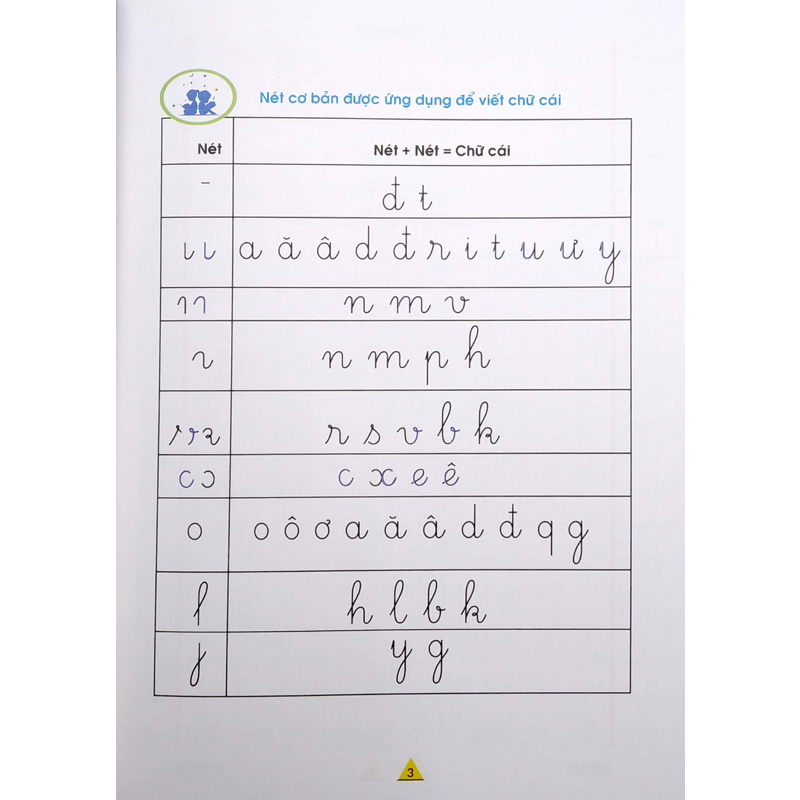 Nét cơ bản được ứng dụng để viết chữ cái
Nét Nét + Nét = Chữ cái
đ t
a ă â d đ r i t u ư y
n m v
n m p h
r s v b k
c x e ê
o o ô ơ a ă â d đ q g
l h l b k
j y g
3